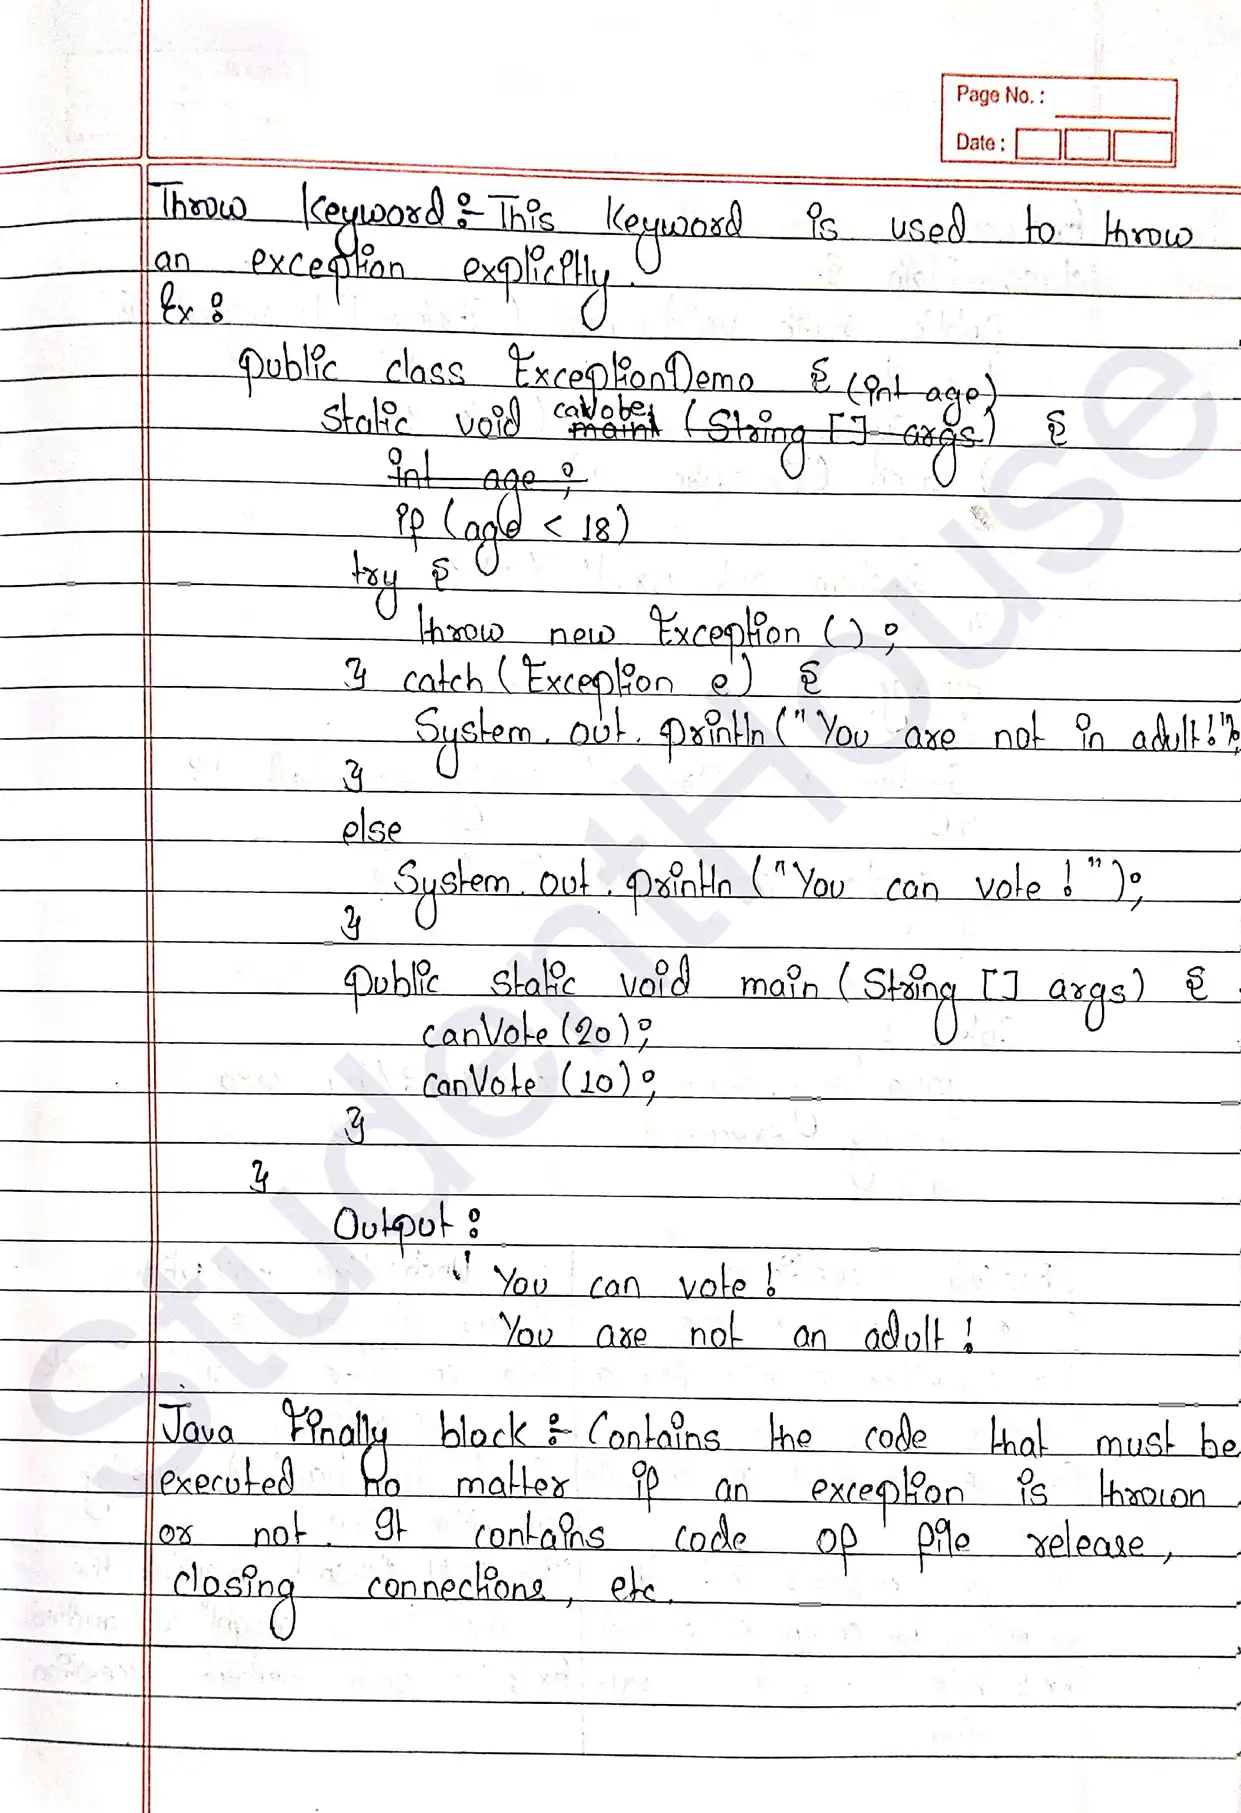 Page No. :
Date :
Throw Keyword :- This Keyword is used to throw
an exception explicitly.
Ex :
public class ExceptionDemo {
(int age)
static void canVote main (String [] args) {
int age ;
if (age < 18)
try {
throw new Exception () ;
} catch (Exception e) {
System. out. println ("You are not in adult!");
}
else
System. out. println ("You can vote !");
}
public static void main (String [] args) {
canVote (20);
canVote (10);
}
}
Output :
You can vote !
You are not an adult !
Java Finally block :- Contains the code that must be
executed no matter if an exception is thrown
or not. It contains code of file release,
closing connections, etc.
StudentHouse